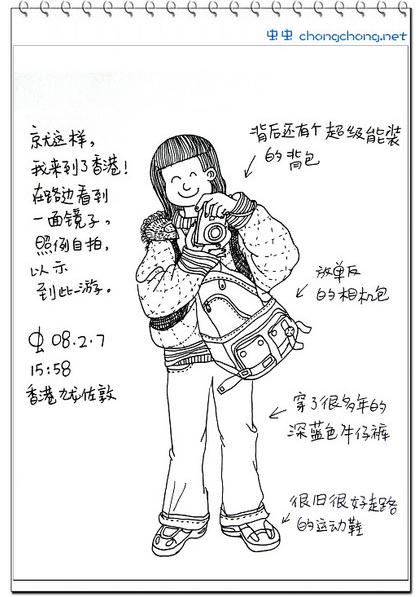 虫虫 chongchong.net
就这样，
我来到了香港！
在路边看到
一面镜子。
照例自拍，
以示
到此一游。
虫 08.2.7
15:58
香港尖佐敦
背后还有个超级能装
的背包
放单反
的相机包
穿了很多年的
深蓝色牛仔裤
很旧很好走路
的运动鞋